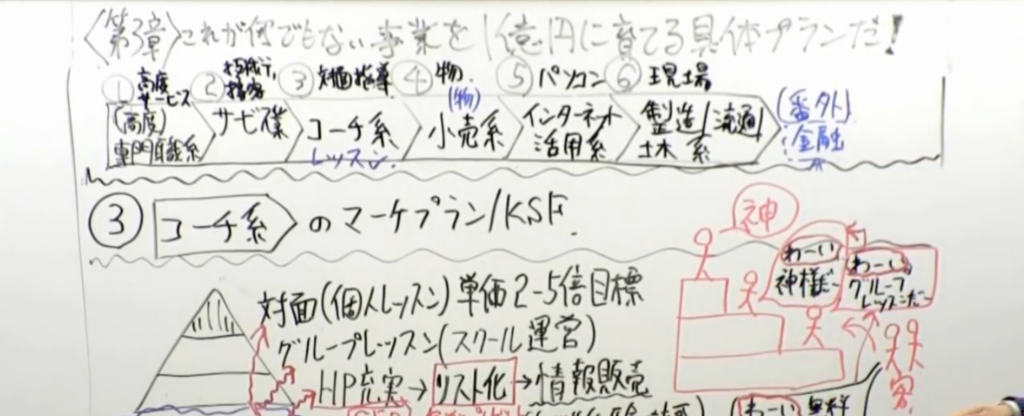 〈第3章〉これが何でもない事業を1億円に育てる具体プランだ!
①高度サービス ② ③対面指導 ④物 ⑤パソコン ⑥現場
(高度)専門職系 サービス業 コーチ系 レッスン (物)小売系 インターネット活用系 製造/流通/土木系 (番外)金融
③ コーチ系 のマーケプラン/KSF
神
わーい
神様だー
わーい
グループ
レッスンだー
対面(個人レッスン)単価2-5倍目標
グループレッスン(スクール運営)
HP充実→リスト化→情報販売
わーい無料
客